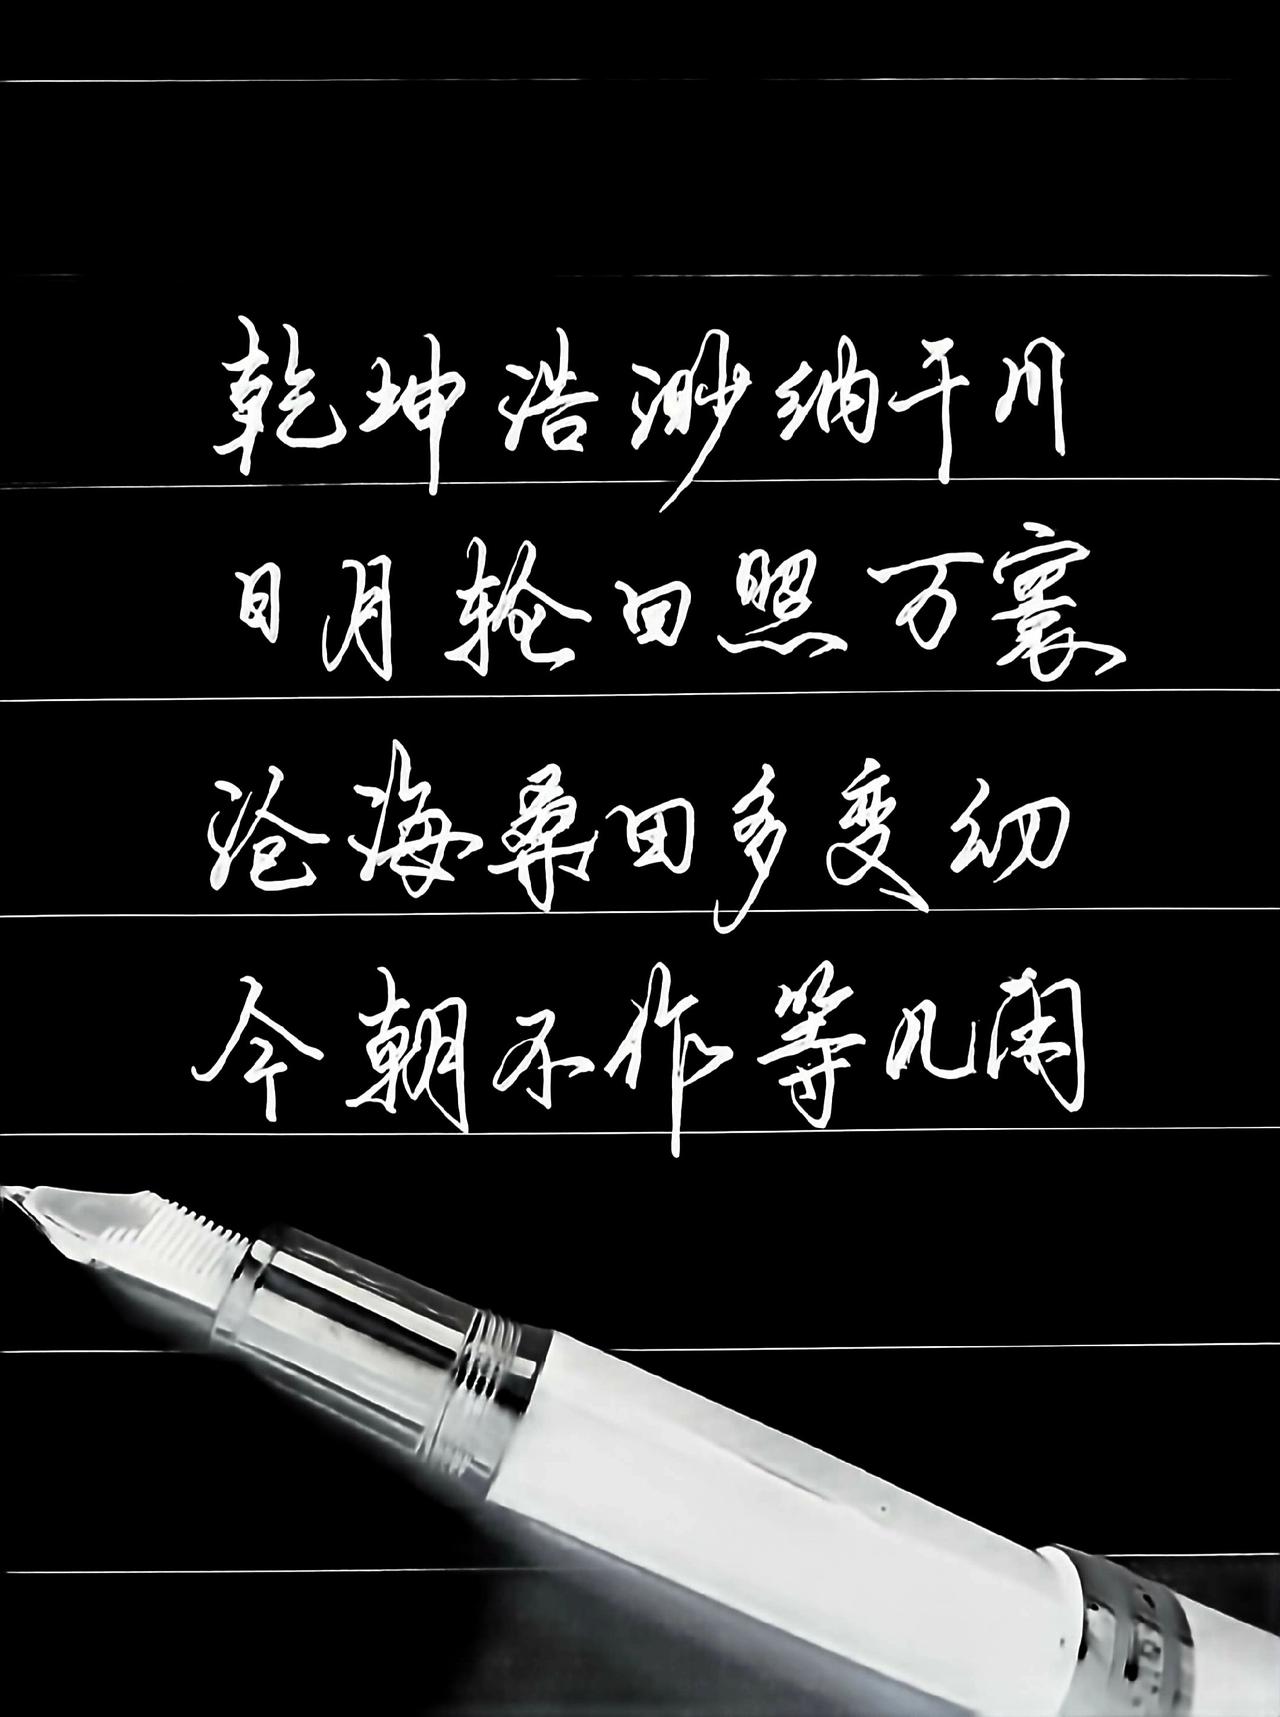 乾坤浩渺纳千川
日月轮回照万寰
沧海桑田多变幻
今朝不作等几闲